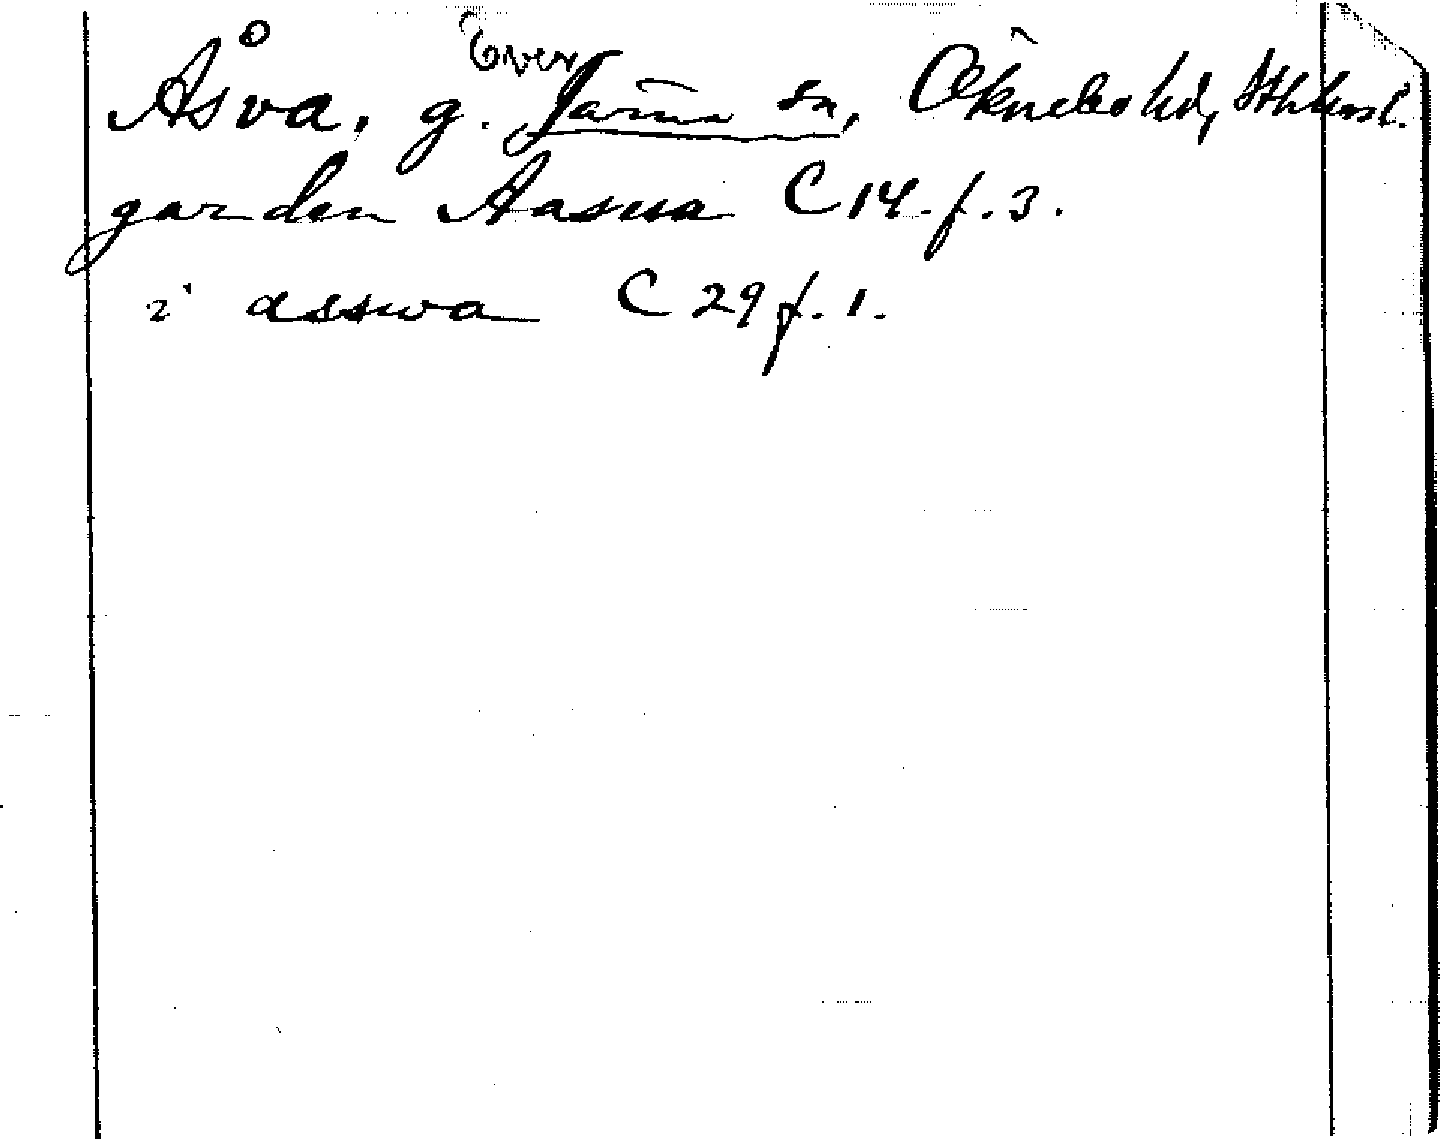 Åsva, g. Över Järna sn, Öknebo hd, Sthlms l.
garden Aasua C 14. f. 3.
i asswa C 29 f. 1.